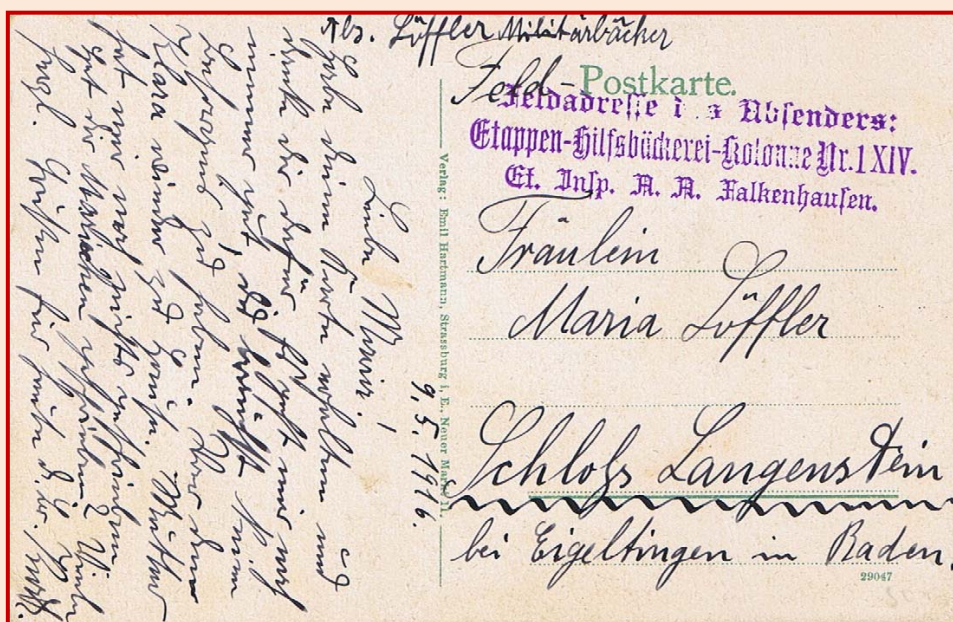 Abs. Löffler Militärbäcker
Feld-Postkarte.
Feldadresse des Absenders:
Etappen-Hilfsbäckerei-Kolonne Nr. 1 XIV.
Et. Insp. A. A. Falkenhausen.
Fräulein
Maria Löffler
Schloß Langenstein
bei Eigeltingen in Baden.
29047
Verlag: Emil Hartmann, Strassburg i. E., Neuer Markt 11.
9.5.1916.
Liebe Marie!
Habe deine Karte erhalten und
danke dir dafür. Es geht mir noch
immer gut, du brauchst keine
zu haben.
Klara wieder zu Haus. Mutter
hat mir noch nichts geschrieben
hat die
Grüßen für heute